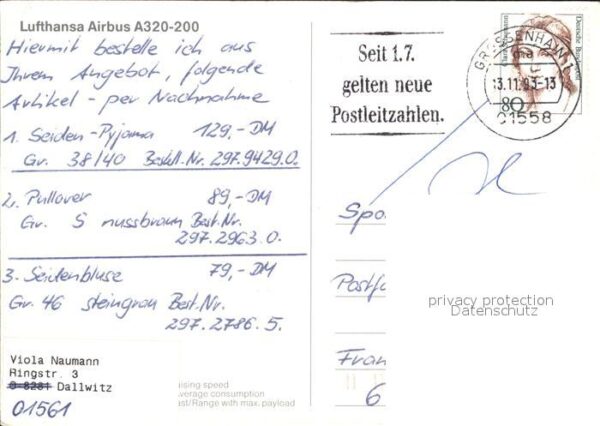 Lufthansa Airbus A320-200
Hiermit bestelle ich aus
Ihrem Angebot, folgende
Artikel - per Nachnahme
1. Seiden-Pyjama 129,- DM
Gr. 38/40 Bestell.Nr. 297.9429.0.
2. Pullover 89,- DM
Gr. S nussbraun Best.Nr.
297.2963.0.
3. Seidenbluse 79,- DM
Gr. 46 steingrau Best.Nr.
297.2786.5.
Viola Naumann
Ringstr. 3
O-8281 Dallwitz
01561
ising speed
verage consumption
ast/Range with max. payload
Seit 1.7.
gelten neue
Postleitzahlen.
GROSSENHAIN 1
13.11.93-13
01558
Deutsche Bundespost
80
Spo
Postfa
Fran
6
privacy protection
Datenschutz